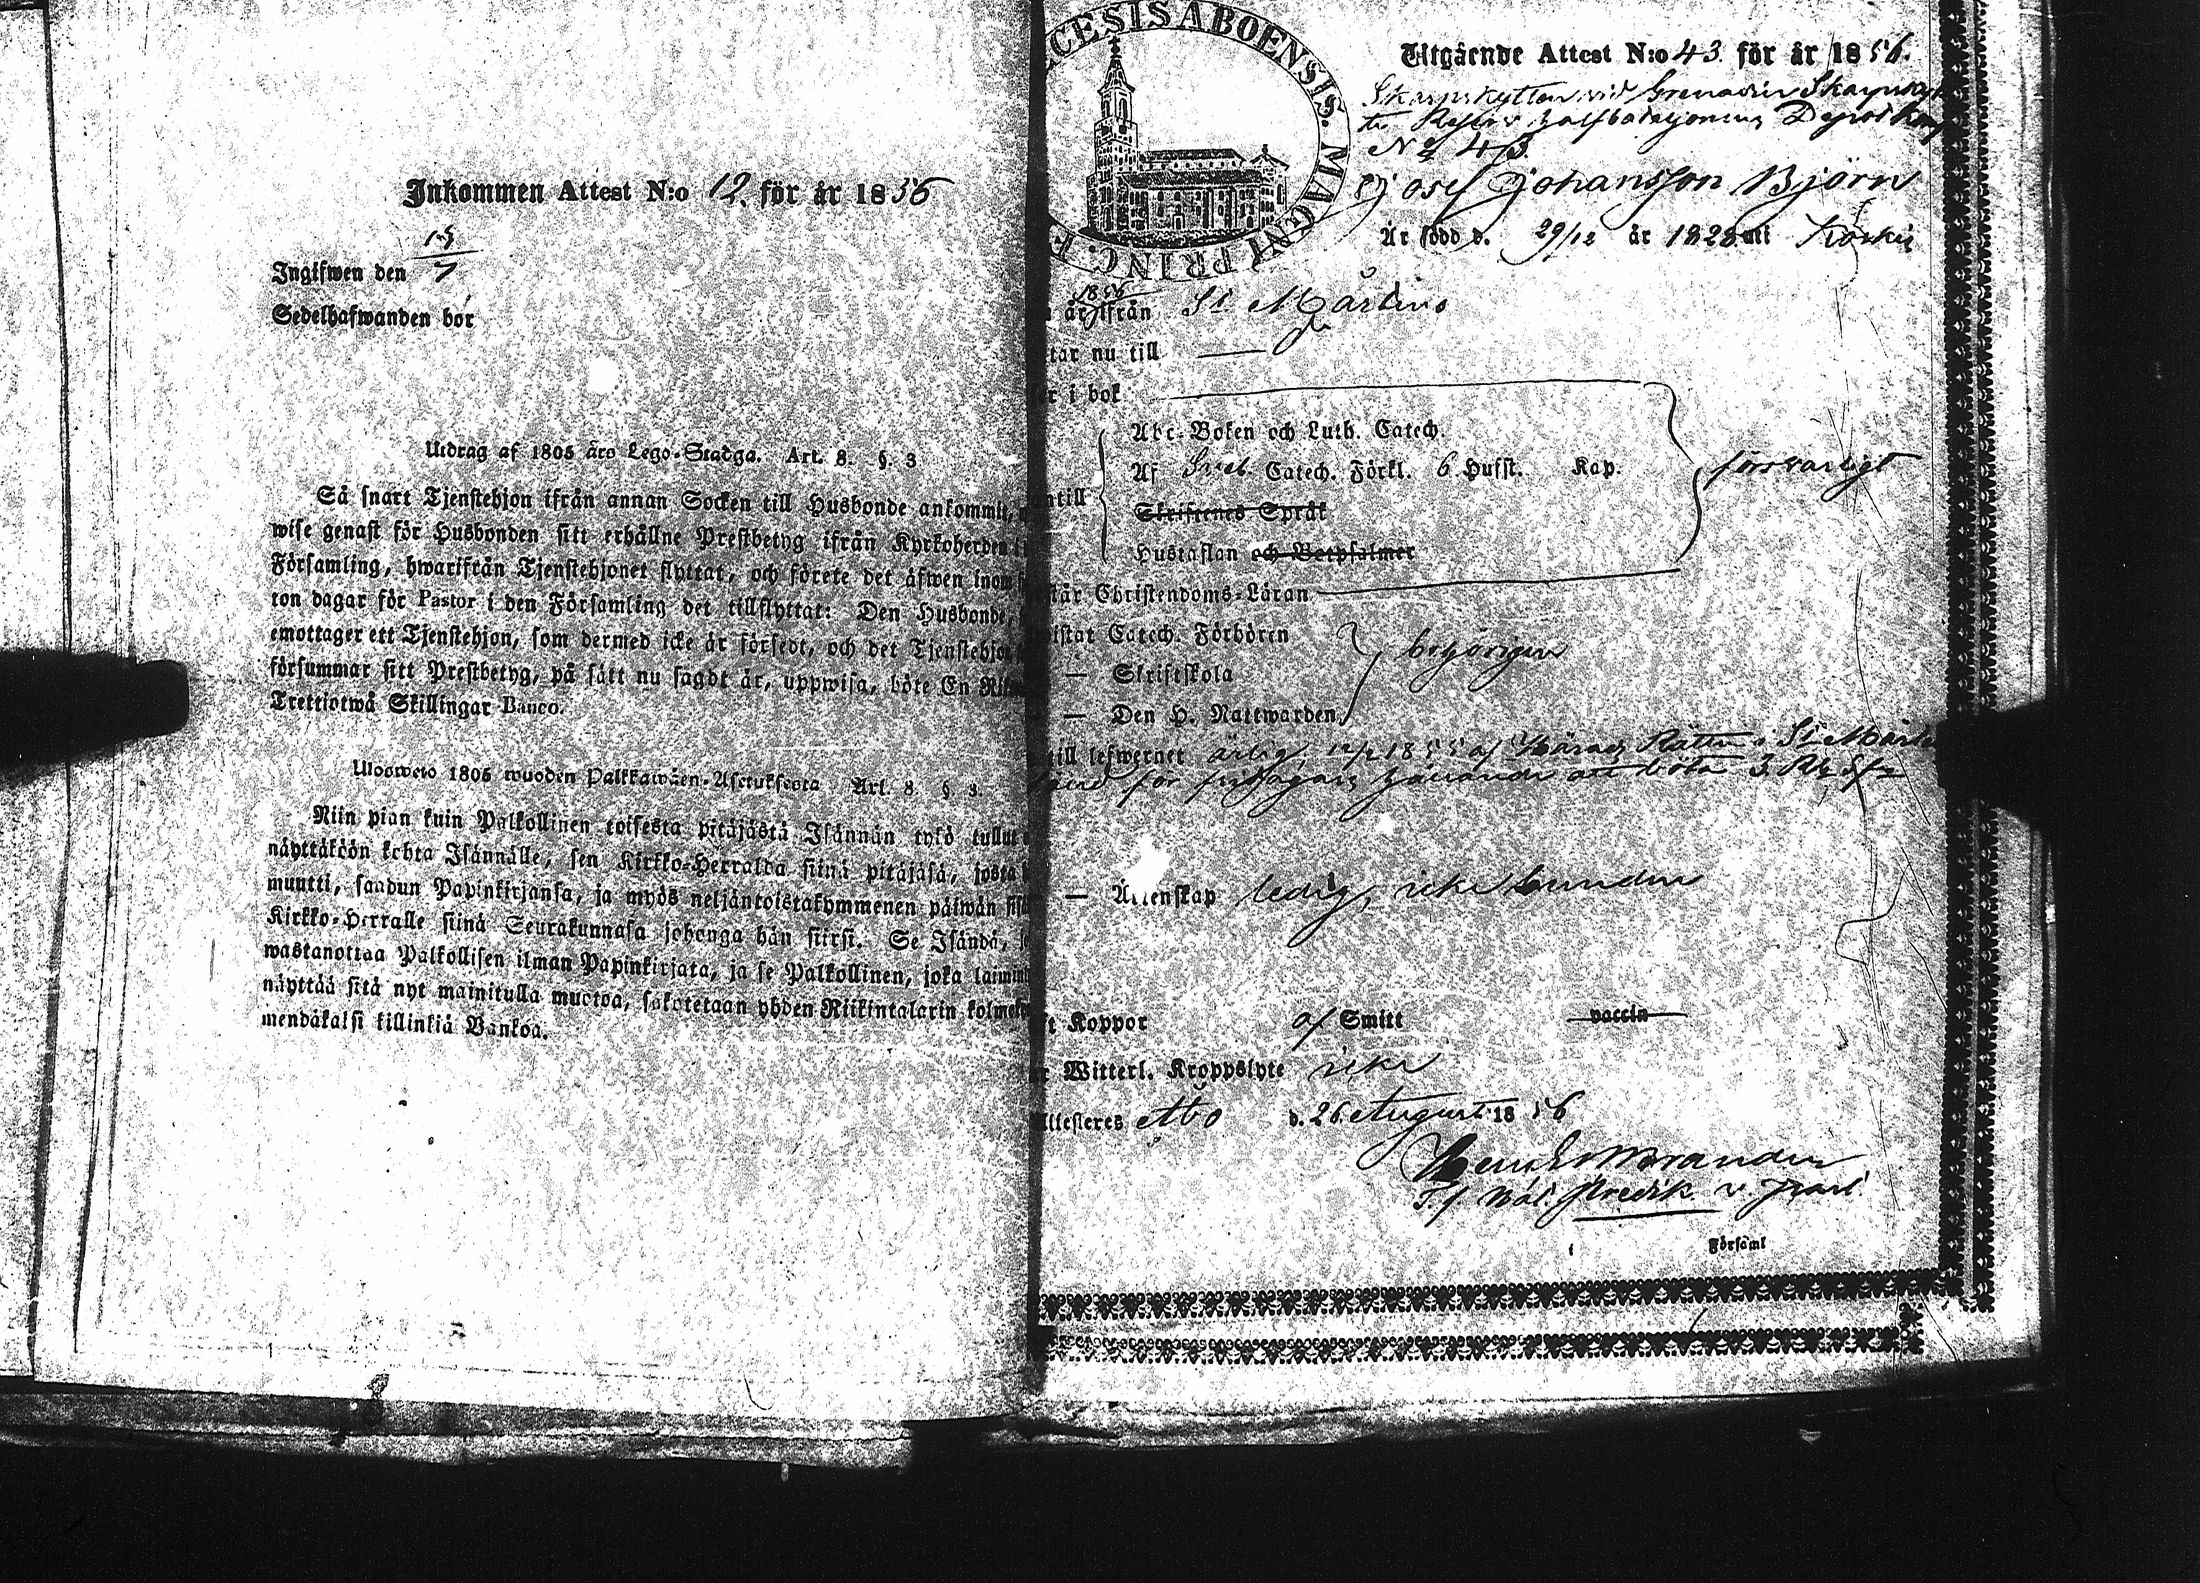 Inkommen Attest N:o 12. för år 1856
15/7
Ingifwen den
Sedelhafwanden bör
Utdrag af 1805 års Lego-Stadga. Art. 8. §. 3
Så snart Tjenstehjon ifrån annan Socken till Husbonde ankommit,
wise genast för Husbonden sitt erhållne Prestbetyg ifrån Kyrkoherden i
Församling, hwarifrån Tjenstehjonet flyttat, och förete det äfwen inom
ton dagar för Pastor i den Församling det tillflyttat: Den Husbonde,
emottager ett Tjenstehjon, som dermed icke är försedt, och det Tjenstehjon
försummar sitt Prestbetyg, på sätt nu sagdt är, uppwisa, böte En
Trettiotwå Skillingar Banco.
Ulosweto 1805 wuoden Palkkawäen-Asetuksesta Art. 8 §. 3.
Niin pian kuin Palkollinen toisesta pitäjästä Isännän tykö tullut
näyttäköön kohta Isännälle, sen Kirkko-Herralda siinä pitäjäsä, josta
muutti, saadun Papinkirjansa, ja myös neljäntoistakymmenen päiwän
Kirkko-Herralle siinä Seurakunnasa johonga hän siirsi. Se Isändä,
wastanottaa Palkollisen ilman Papinkirjata, ja se Palkollinen, joka
näyttää sitä nyt mainitulla muotoa, sakotetaan yhden Riikintalarin
mendäkaksi killinkiä Bankoa.
ECESIS ABOENSIS. MAGNI PRINC. F
Utgående Attest N:o 43. för år 1856.
Skarpskytten vid Grenadier
Depot
No 43.
Josef Johansson Björn
Är född d. 29/12 år 1828 uti Koski
1856
ifrån St Mårtens
tar nu till — do
i bok
Abc-Boken och Luth. Catech.
Af Sveb. Catech. Förkl. 6 Hufst. Kap. försvarligt
ntill
Skriftenes Språk
Hustaflan och Botpsalmer
står Christendoms-Läran
istat Catech. Förhören
behörigen
— Skriftskola
— Den H. Nattwarden
till lefwernet ärlig, 12/2 1855 af Härads Rätten i St Mårtens
för att böta 3. Rb
— Äktenskap ledig, icke bunden
t Koppor af Smitt vaccin
r Witterl. Kroppslyte icke
Attesteres Åbo d. 26 August 1856
T.f. Bat. Predik.
i Församl